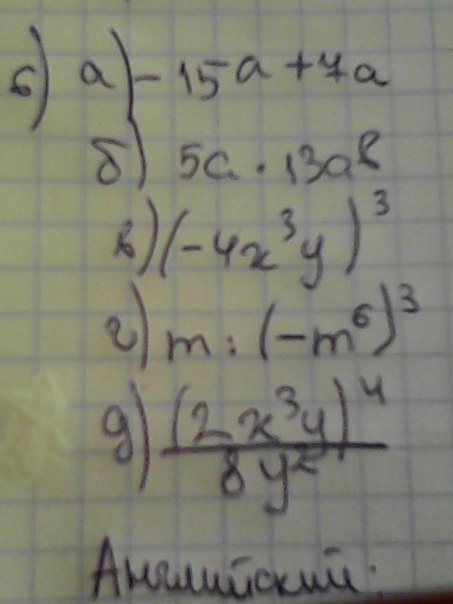 6) а) - 15a + 7a
б) 5a · 13ab
в) (-4x³y)³
г) m : (-m⁶)³
д) (2x³y)⁴
8y²
Английский: